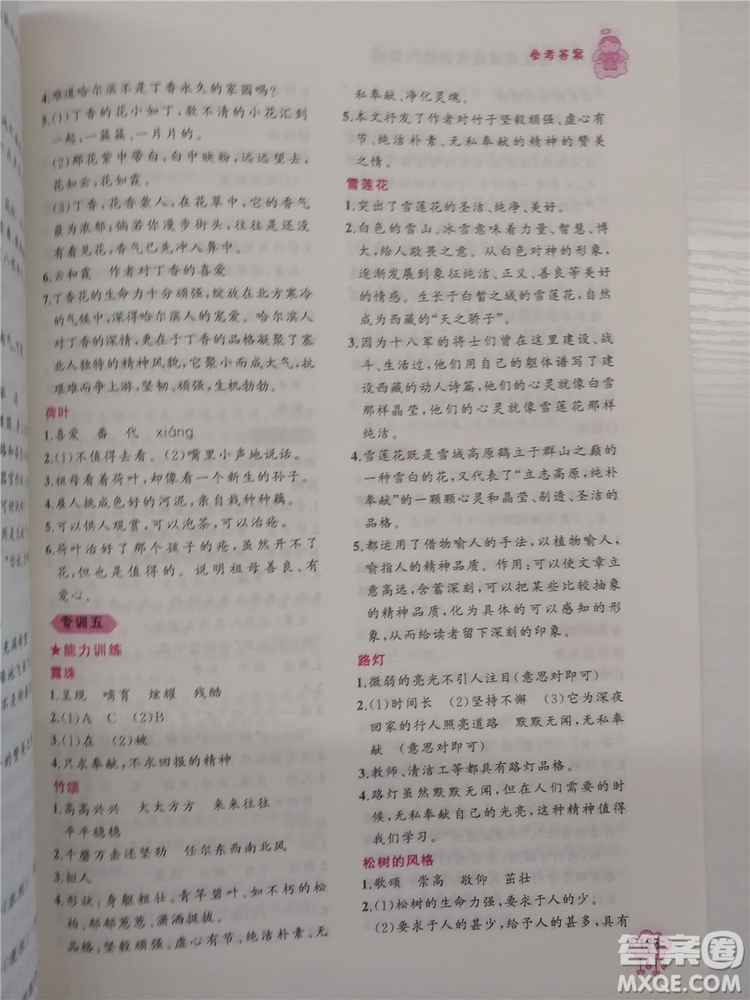 参考答案
4.难道哈尔滨不是丁香永久的家园吗?
5.(1)丁香的花小如丁,数不清的小花汇到
一起,一簇簇,一片片的。
(2)那花紫中带白,白中映粉,远远望去,
花如云,花如霞。
(3)丁香,花香袭人,在花草中,它的香气
最为浓郁;倘若你漫步街头,往往是还没
有见花,香气已先冲入鼻中。
6.云和霞 作者对丁香的喜爱
7.丁香花的生命力十分顽强,绽放在北方寒冷
的气候中,深得哈尔滨人的宠爱。哈尔滨人
对丁香的深情,更在于丁香的品格凝聚了塞
北人独特的精神风貌,它展示了大气,抗
艰难而争上游,坚韧、顽强,生机勃勃。
荷叶
1.喜爱 番 代 xiáng
2.(1)不值得去看。(2)嘴里小声地说话。
3.祖母看着荷叶,却像看一个新生的孙子。
4.雇人挑成色好的河泥,亲自栽种种藕。
5.可以供人观赏,可以泡茶,可以治疮。
6.荷叶治好了那个孩子的疮,虽然开不了
花,但也是值得的。说明祖母善良、有
爱心。
专训五
★能力训练
露珠
1.呈现 哺育 炫耀 残酷
2.(1)A C (2)B
3.(1)在 (2)被
4.只求奉献,不求回报的精神
竹颂
1.高高兴兴 大大方方 来来往往
平平稳稳
2.千磨万击还坚劲 任尔东西南北风
3.拟人
4.形状:身躯粗壮,青竿碧叶,如不朽的松
柏,郁郁葱葱、潇洒挺拔。
品格:坚毅顽强、虚心有节、纯洁朴素、无
私奉献、净化灵魂。
5.本文抒发了作者对竹子坚毅顽强、虚心有
节、纯洁朴素、无私奉献的精神的赞美
之情。
雪莲花
1.突出了雪莲花的圣洁、纯净、美好。
2.白色的雪山、冰雪意味着力量、智慧、博
大,给人敬畏之意。从白色对神的形象,
逐渐发展到象征纯洁、正义、善良等美好
的情感。生长于白皙之城的雪莲花,当
然成为西藏的“天之骄子”。
3.因为十八军的将士们曾在这里建设、战
斗、生活,用他们自己的躯体谱写了建
设西藏的动人诗篇,他们的心灵就像白雪
那样晶莹,他们的心灵就像雪莲花那样
纯洁。
4.雪莲花既是雪域高原鹤立于群山之巅的
一种雪白的花,又代表了“立志高原,纯朴
奉献”的一颗颗心灵和晶莹、剔透、圣洁的
品格。
5.都运用了借物喻人的手法,以植物喻人,
喻指人的精神品质。作用:可以使文章立
意高远,含蓄深刻,可以把某些比较抽象
的精神品质,化为具体的可以感知的形
象,从而给读者留下深刻的印象。
路灯
1.微弱的亮光不引人注目(意思对即可)
2.(1)时间长 (2)坚持不懈 (3)它为深夜
回家的行人照亮道路 默默无闻,无私奉
献 (意思对即可)
3.教师、清洁工等都具有路灯品格。
4.路灯虽然默默无闻,但在人们需要的时
候,无私奉献自己的光亮,这种精神值得
我们学习。
松树的风格
1.歌颂 崇高 敬仰 茁壮
2.(1)松树的生命力强,要求于人的少。
(2)要求于人的甚少,给予人的甚多,具有
答案圈
MXQE.COM